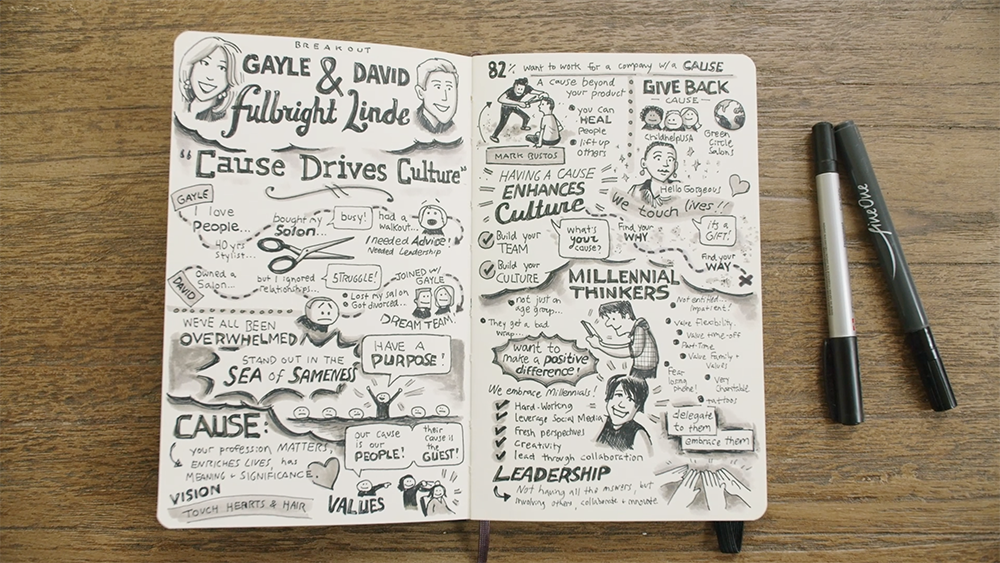 BREAKOUT
GAYLE & DAVID
fulbright Linde
"Cause Drives Culture"
GAYLE
I love
People...
40 yrs
Stylist...
bought my
Salon...
busy!
had a
walkout...
I needed Advice!
Needed Leadership
DAVID
Owned a
Salon...
but I ignored
relationships...
STRUGGLE!
Lost my salon
Got divorced...
JOINED w/
GAYLE
DREAM TEAM!
WE'VE ALL BEEN
OVERWHELMED!
STAND OUT IN THE
SEA of SAMENESS
HAVE A
PURPOSE!
CAUSE:
your profession MATTERS,
ENRICHES LIVES, has
MEANING + SIGNIFICANCE.
VISION
TOUCH HEARTS & HAIR
our cause
is our
PEOPLE!
their
cause is
the
GUEST!
VALUES
82% want to work for a company w/a CAUSE
A cause beyond
your product
you can
HEAL
People
lift up
others
MARK BUSTOS
GIVE BACK
CAUSE
ChildhelpUSA
Green
Circle
Salons
Hello Gorgeous
We touch lives!!
HAVING A CAUSE
ENHANCES
Culture
Build your
TEAM
Build your
CULTURE
What's
your
cause?
Find your
WHY
It's
a
GIFT!
Find your
WAY
MILLENNIAL
THINKERS
not just an
age group...
They get a bad
wrap...
want to
make a positive
difference!
Not entitled...
impatient!
Value flexibility,
Value time-off
Part-Time
Value Family +
Values
Fear
losing
phone!
Very
Charitable
tattoos
We embrace Millennials!
Hard-Working
Leverage Social Media
Fresh perspectives
Creativity
lead through collaboration
delegate
to them
embrace them
LEADERSHIP
Not having all the answers, but
involving others, collaborate + innovate
fineOne